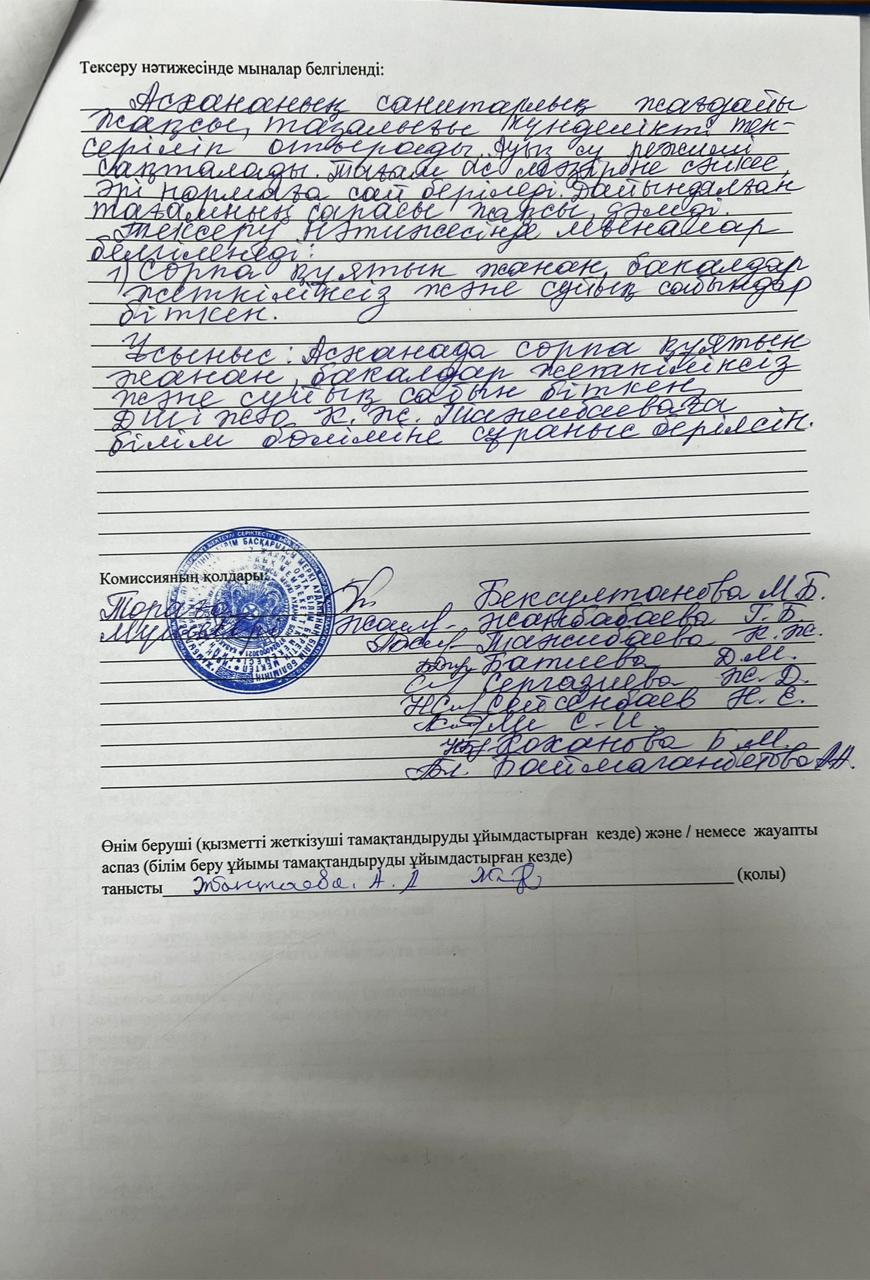 Тексеру нәтижесінде мыналар белгіленді:
Асхананың санитарлық жағдайы
жақсы, тазалығы күнделікті тек-
серіліп отырады. Ауыз су режимі
сақталады. Тағам ас мәзіріне сәйкес,
әрі нормаға сай беріледі. Дайындалған
тағамның сапасы жақсы, дәмді.
Тексеру нәтижесінде мыналар
белгіленеді:
1) Сорпа құятын жанан, бакалдар
жеткіліксіз және сұйық сабындар
біткен.
Ұсыныс: Асханада сорпа құятын
жанан, бакалдар жеткіліксіз
және сұйық сабын біткен,
ДШІ жө. К. Ж. Тажибаеваға
білім бөліміне сұраныс берілсін.
Комиссияның қолдары:
Төраға Бексултанова М.Б.
Мүшелері Жанбабаева Г. Б.
Тажибаева К. Ж.
Батиева Д.М.
Сергазиева Ж. Д.
Сейсенбаев Н. Е.
Ли С. И.
Коханова Б. М.
Баймаганбетова А.Н.
Өнім беруші (қызметті жеткізуші тамақтандыруды ұйымдастырған кезде) және / немесе жауапты
аспаз (білім беру ұйымы тамақтандыруды ұйымдастырған кезде)
танысты А. А (қолы)